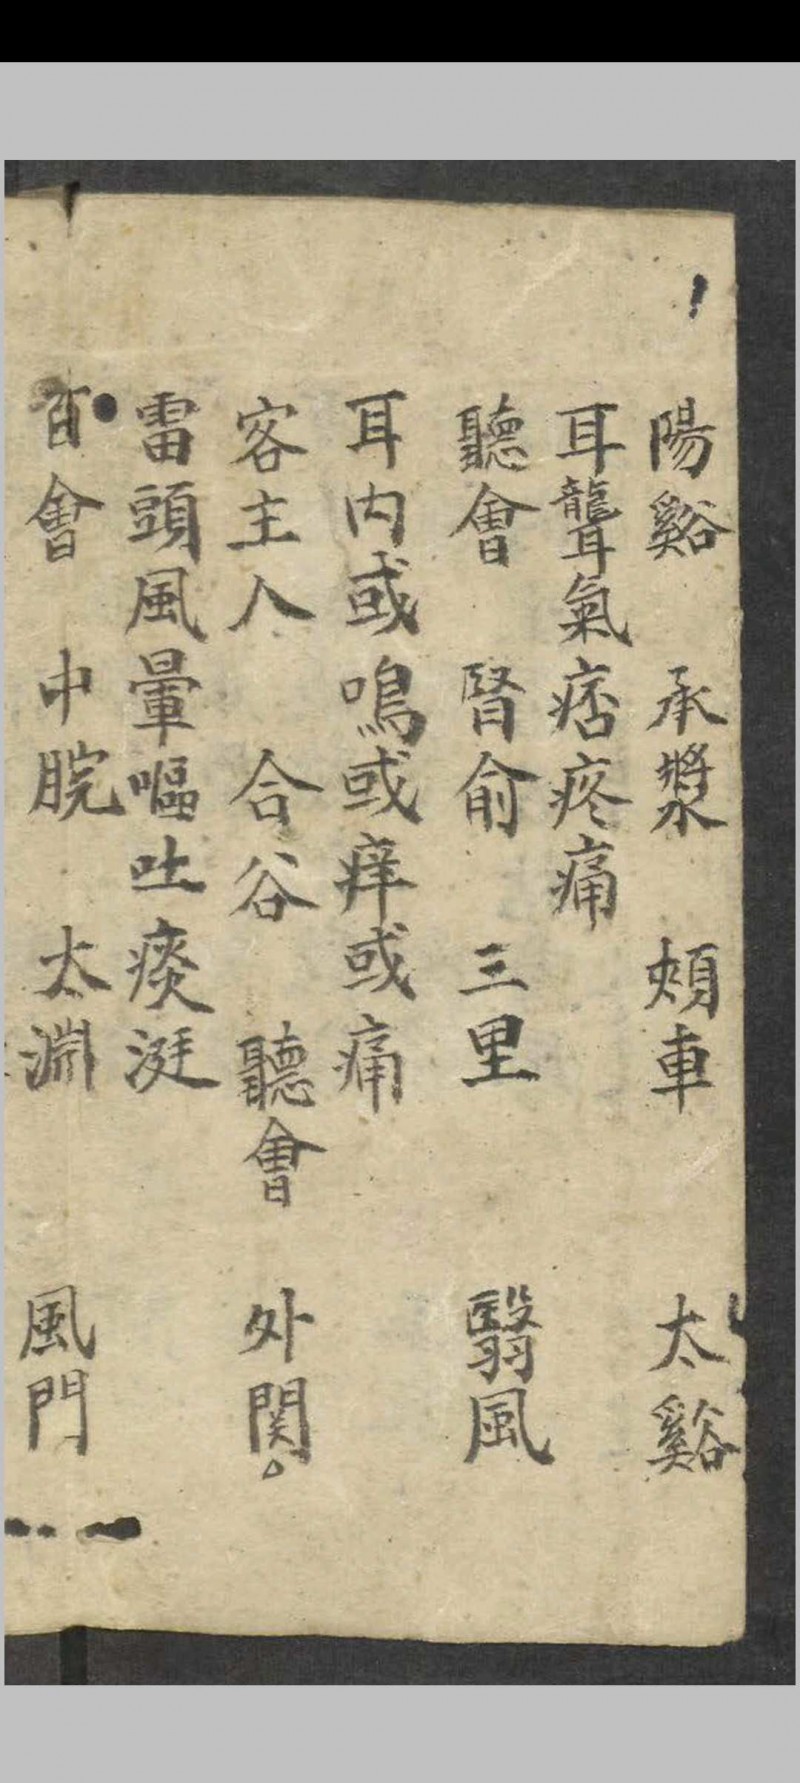 陽谿 承漿 頰車 太谿
耳聾氣痞疼痛
聽會 腎俞 三里 翳風
耳内或鳴或痒或痛
客主人 合谷 聽會 外関
雷頭風暈嘔吐痰涎
百會 中脘 太淵 風門